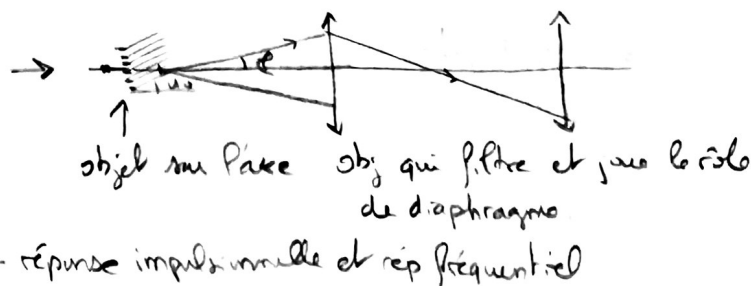 objet sur l'axe obj qui filtre et joue le rôle
de diaphragme
- réponse impulsionnelle et rép fréquentiel